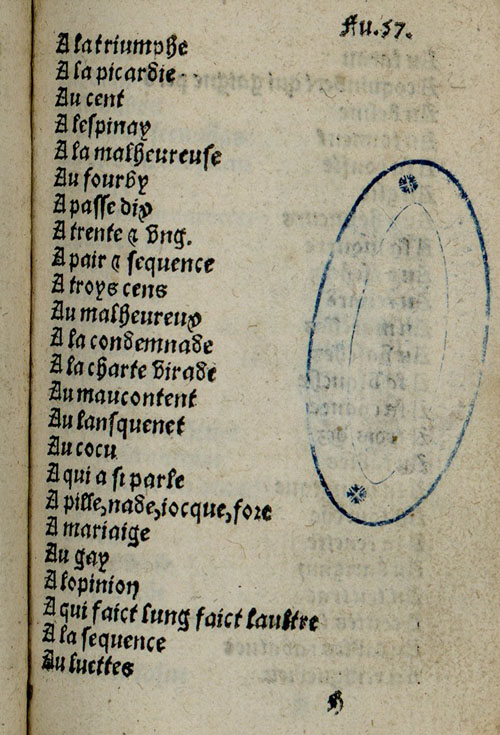 Fu.57.
A la triumphe
A la picardie
Au cent
A lespinay
A la malheureuse
Au fourby
A passe dix
A trente & vng.
A pair & sequence
A troys cens
Au malheureux
A la condemnade
A la charte virade
Au maucontent
Au lansquenet
Au cocu
A qui a si parle
A pille,nade,iocque,fore
A mariaige
Au gay
A lopinion
A qui faict lung faict laultre
A la sequence
Au luettes